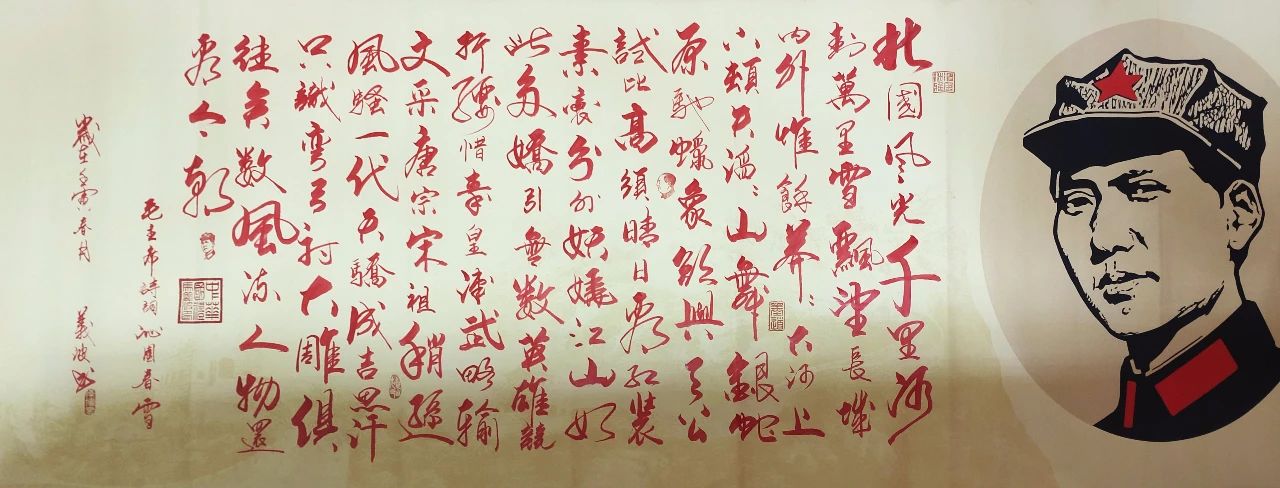 北國风光千里冰
封萬里雪飄望長城
内外唯餘莽〻大河上
下頓失滔〻山舞銀蛇
原馳蠟象欲與天公
試比高須晴日看红裝
素裹分外妖嬈江山如
此多嬌引無数英雄競
折腰惜秦皇漢武略輸
文采唐宗宋祖稍遜
風騷一代天驕成吉思汗
只識彎弓射大雕俱
往矣数風流人物還
看今朝
毛主席詩詞沁園春雪
歲在壬寅春月 義波书